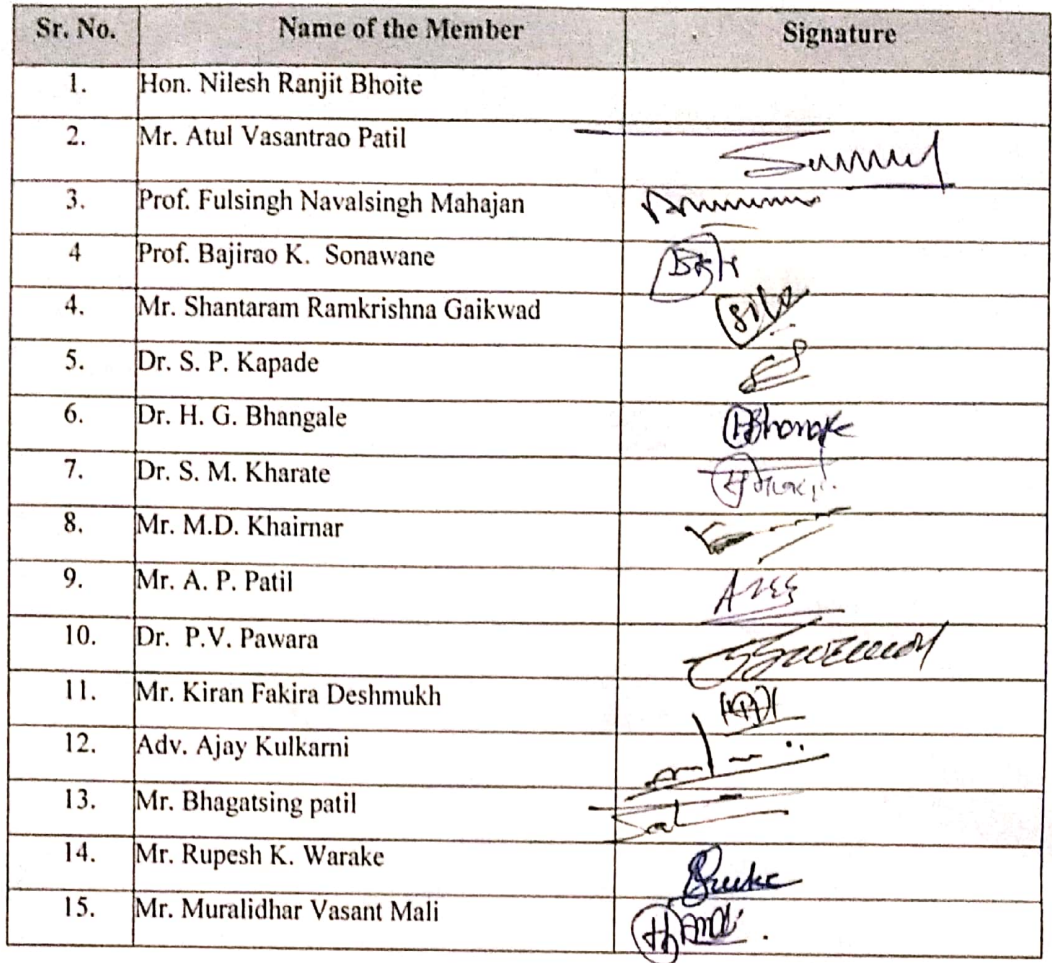 Sr. No. Name of the Member Signature
1. Hon. Nilesh Ranjit Bhoite
2. Mr. Atul Vasantrao Patil
3. Prof. Fulsingh Navalsingh Mahajan
4 Prof. Bajirao K. Sonawane
4. Mr. Shantaram Ramkrishna Gaikwad
5. Dr. S. P. Kapade
6. Dr. H. G. Bhangale
7. Dr. S. M. Kharate
8. Mr. M.D. Khairnar
9. Mr. A. P. Patil
10. Dr. P.V. Pawara
11. Mr. Kiran Fakira Deshmukh
12. Adv. Ajay Kulkarni
13. Mr. Bhagatsing patil
14. Mr. Rupesh K. Warake
15. Mr. Muralidhar Vasant Mali